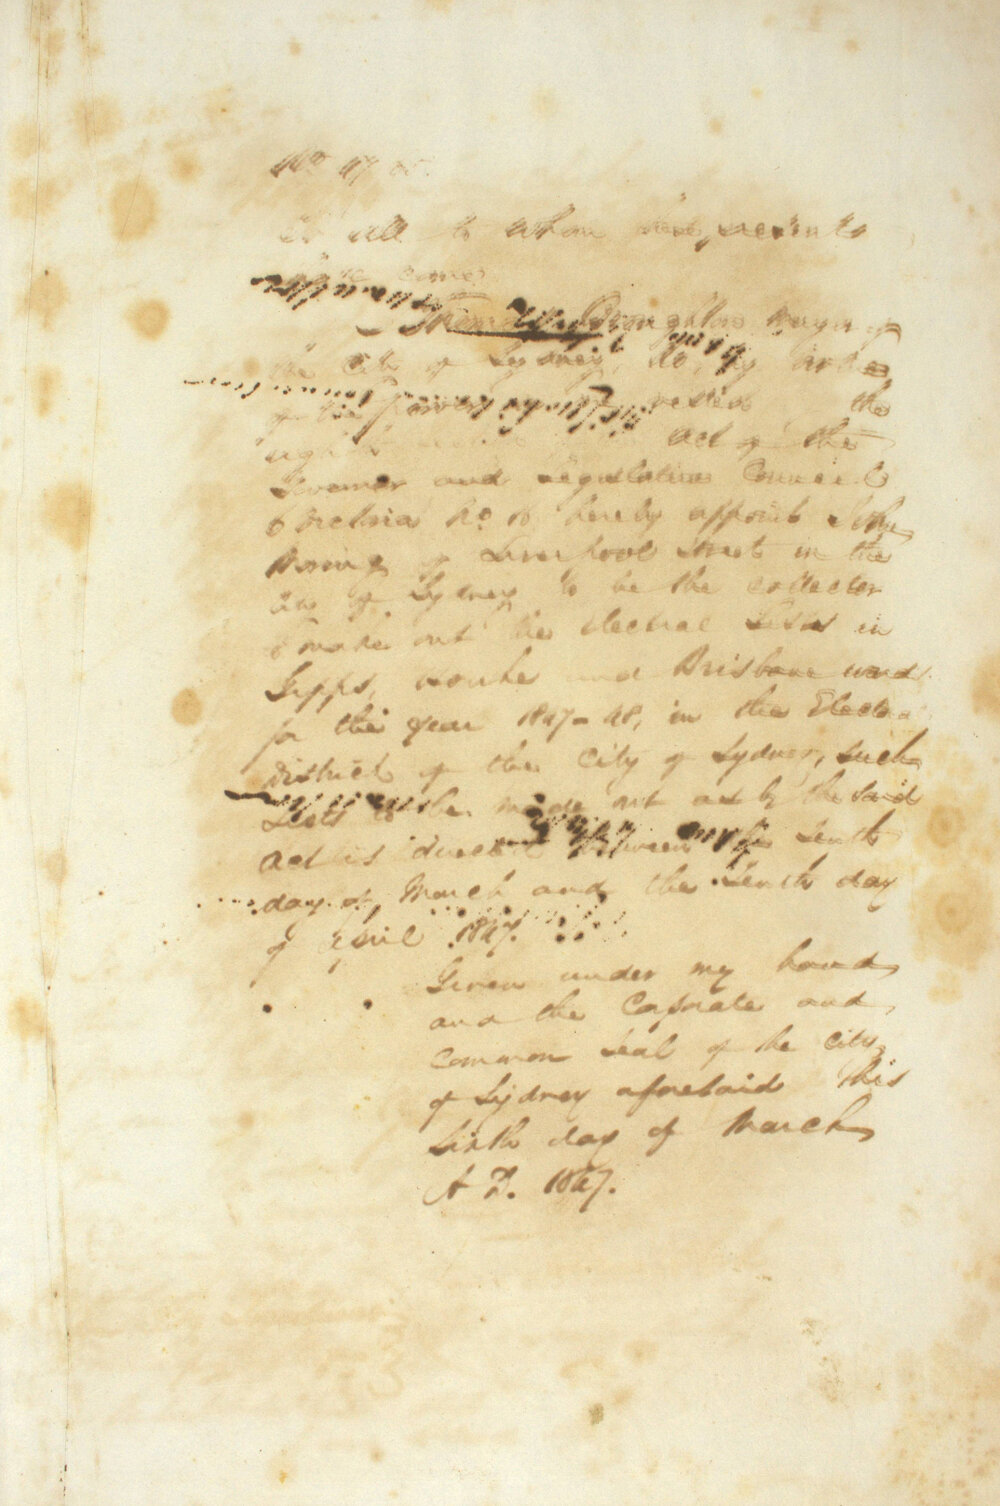 No 47
To all to whom these presents
come
Thomas Broughton Mayor of
the City of Sydney, do, by virtue
of the powers vested the
Act of the
Governor and Legislative Council
Victoria No. hereby appoint John
of Liverpool Street in the
City of Sydney to be the collector
to make out the electoral Lists in
Gipps, Bourke and Brisbane wards
for the year 1847-48, in the Electoral
District of the City of Sydney, such
Lists to be made out as by the said
act is directed between the tenth
day of March and the tenth day
of April 1847.
Given under my hand
and the Corporate and
Common Seal of the City
of Sydney aforesaid This
Sixth day of March
A D. 1847.